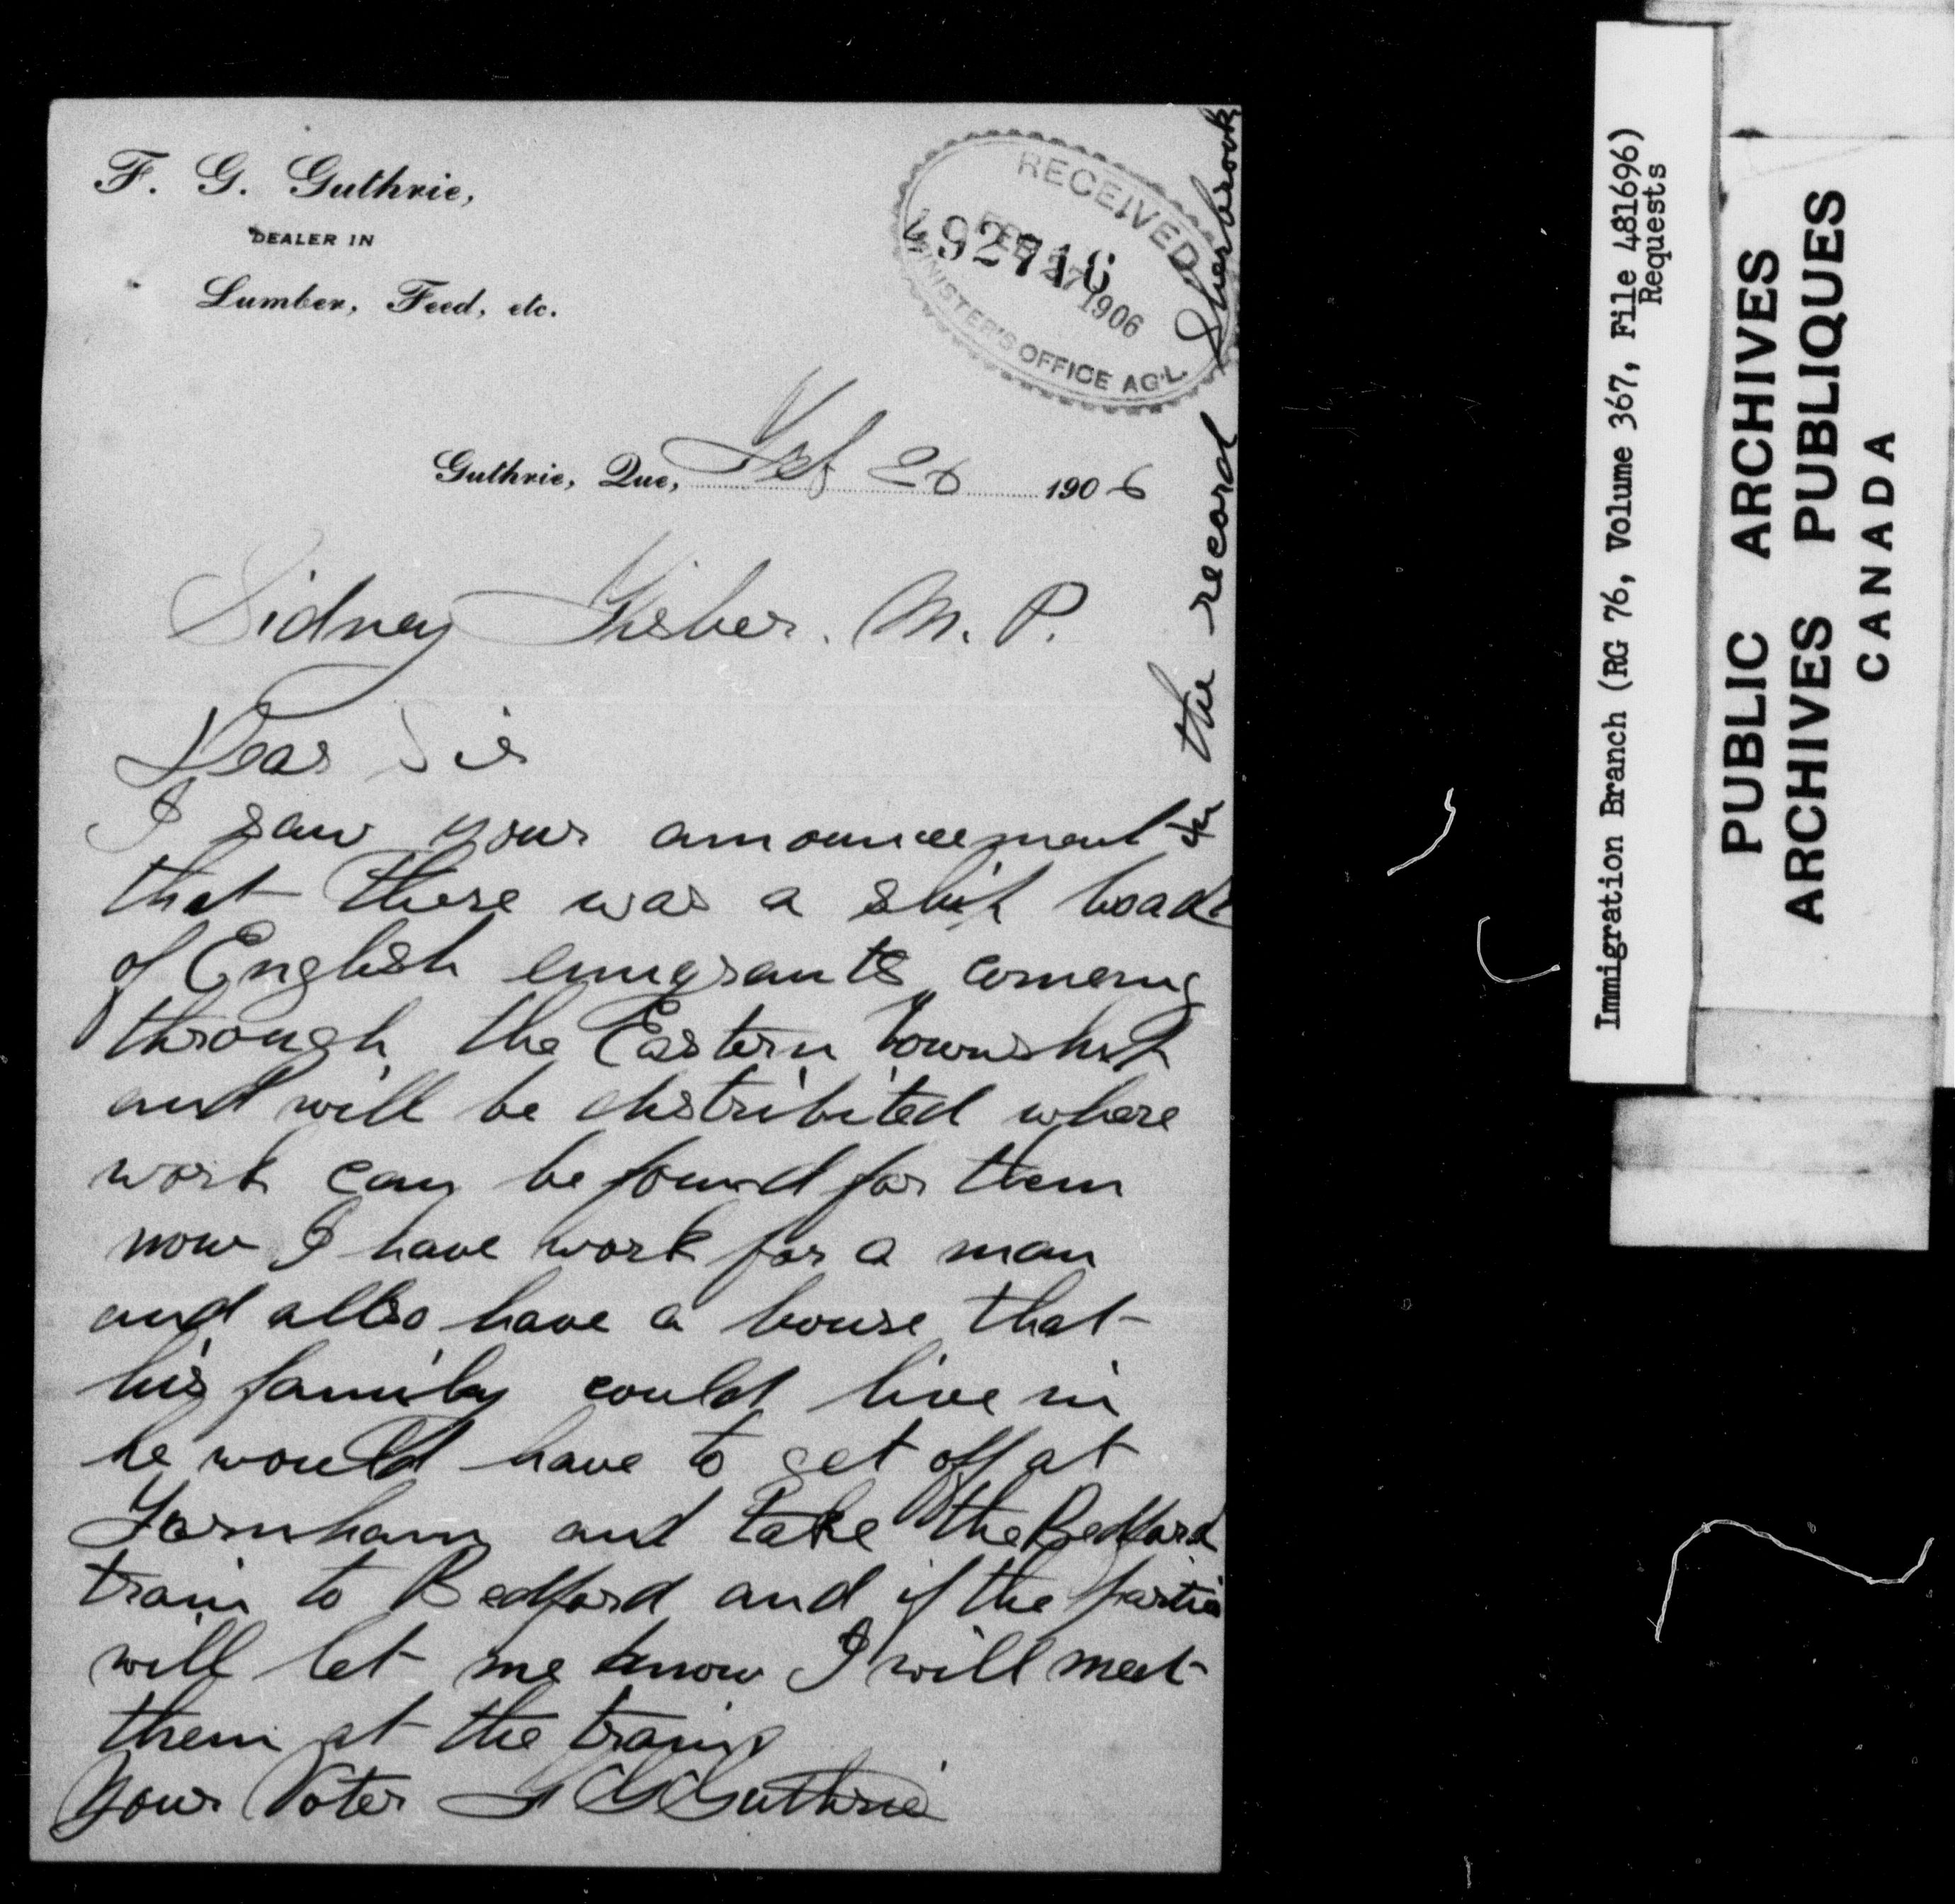 F. G. Guthrie,
DEALER IN
Lumber, Feed, etc.
RECEIVED
492716
FEB 27 1906
MINISTER'S OFFICE AG'L.
Guthrie, Que, Feb 26 1906
Sidney Fisher. M. P.
Dear Sir
I saw your announcement in the record Sherbrook
that there was a ship load
of English emigrants comeing
through the Eastern township
and will be distribited where
work can be found for them
now I have work for a man
and allso have a house that
his family could live in
he would have to get off at
Farnham and take the Bedford
train to Bedford and if the partie
will let me know I will meet
them at the train
Your Voter F G Guthrie
Immigration Branch (RG 76, Volume 367, File 481696)
Requests
PUBLIC ARCHIVES
ARCHIVES PUBLIQUES
CANADA